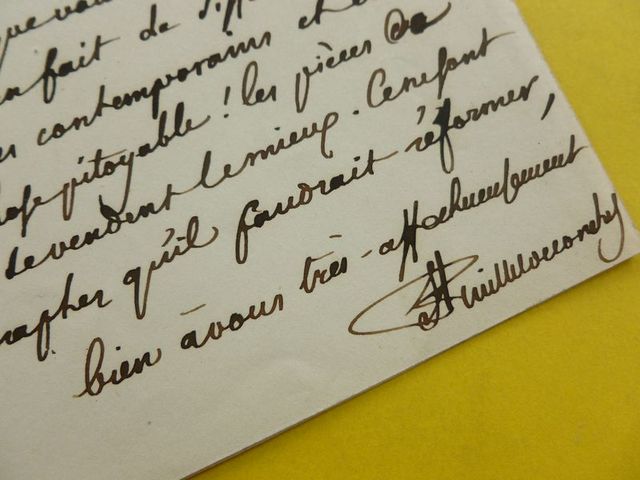 que vou
en fait de diff
es contemporains et
pitoyable! les pièces de
se vendent le mieux. Ce ne sont
rapher qu'il faudrait réformer,
bien à vous très-affectueusement